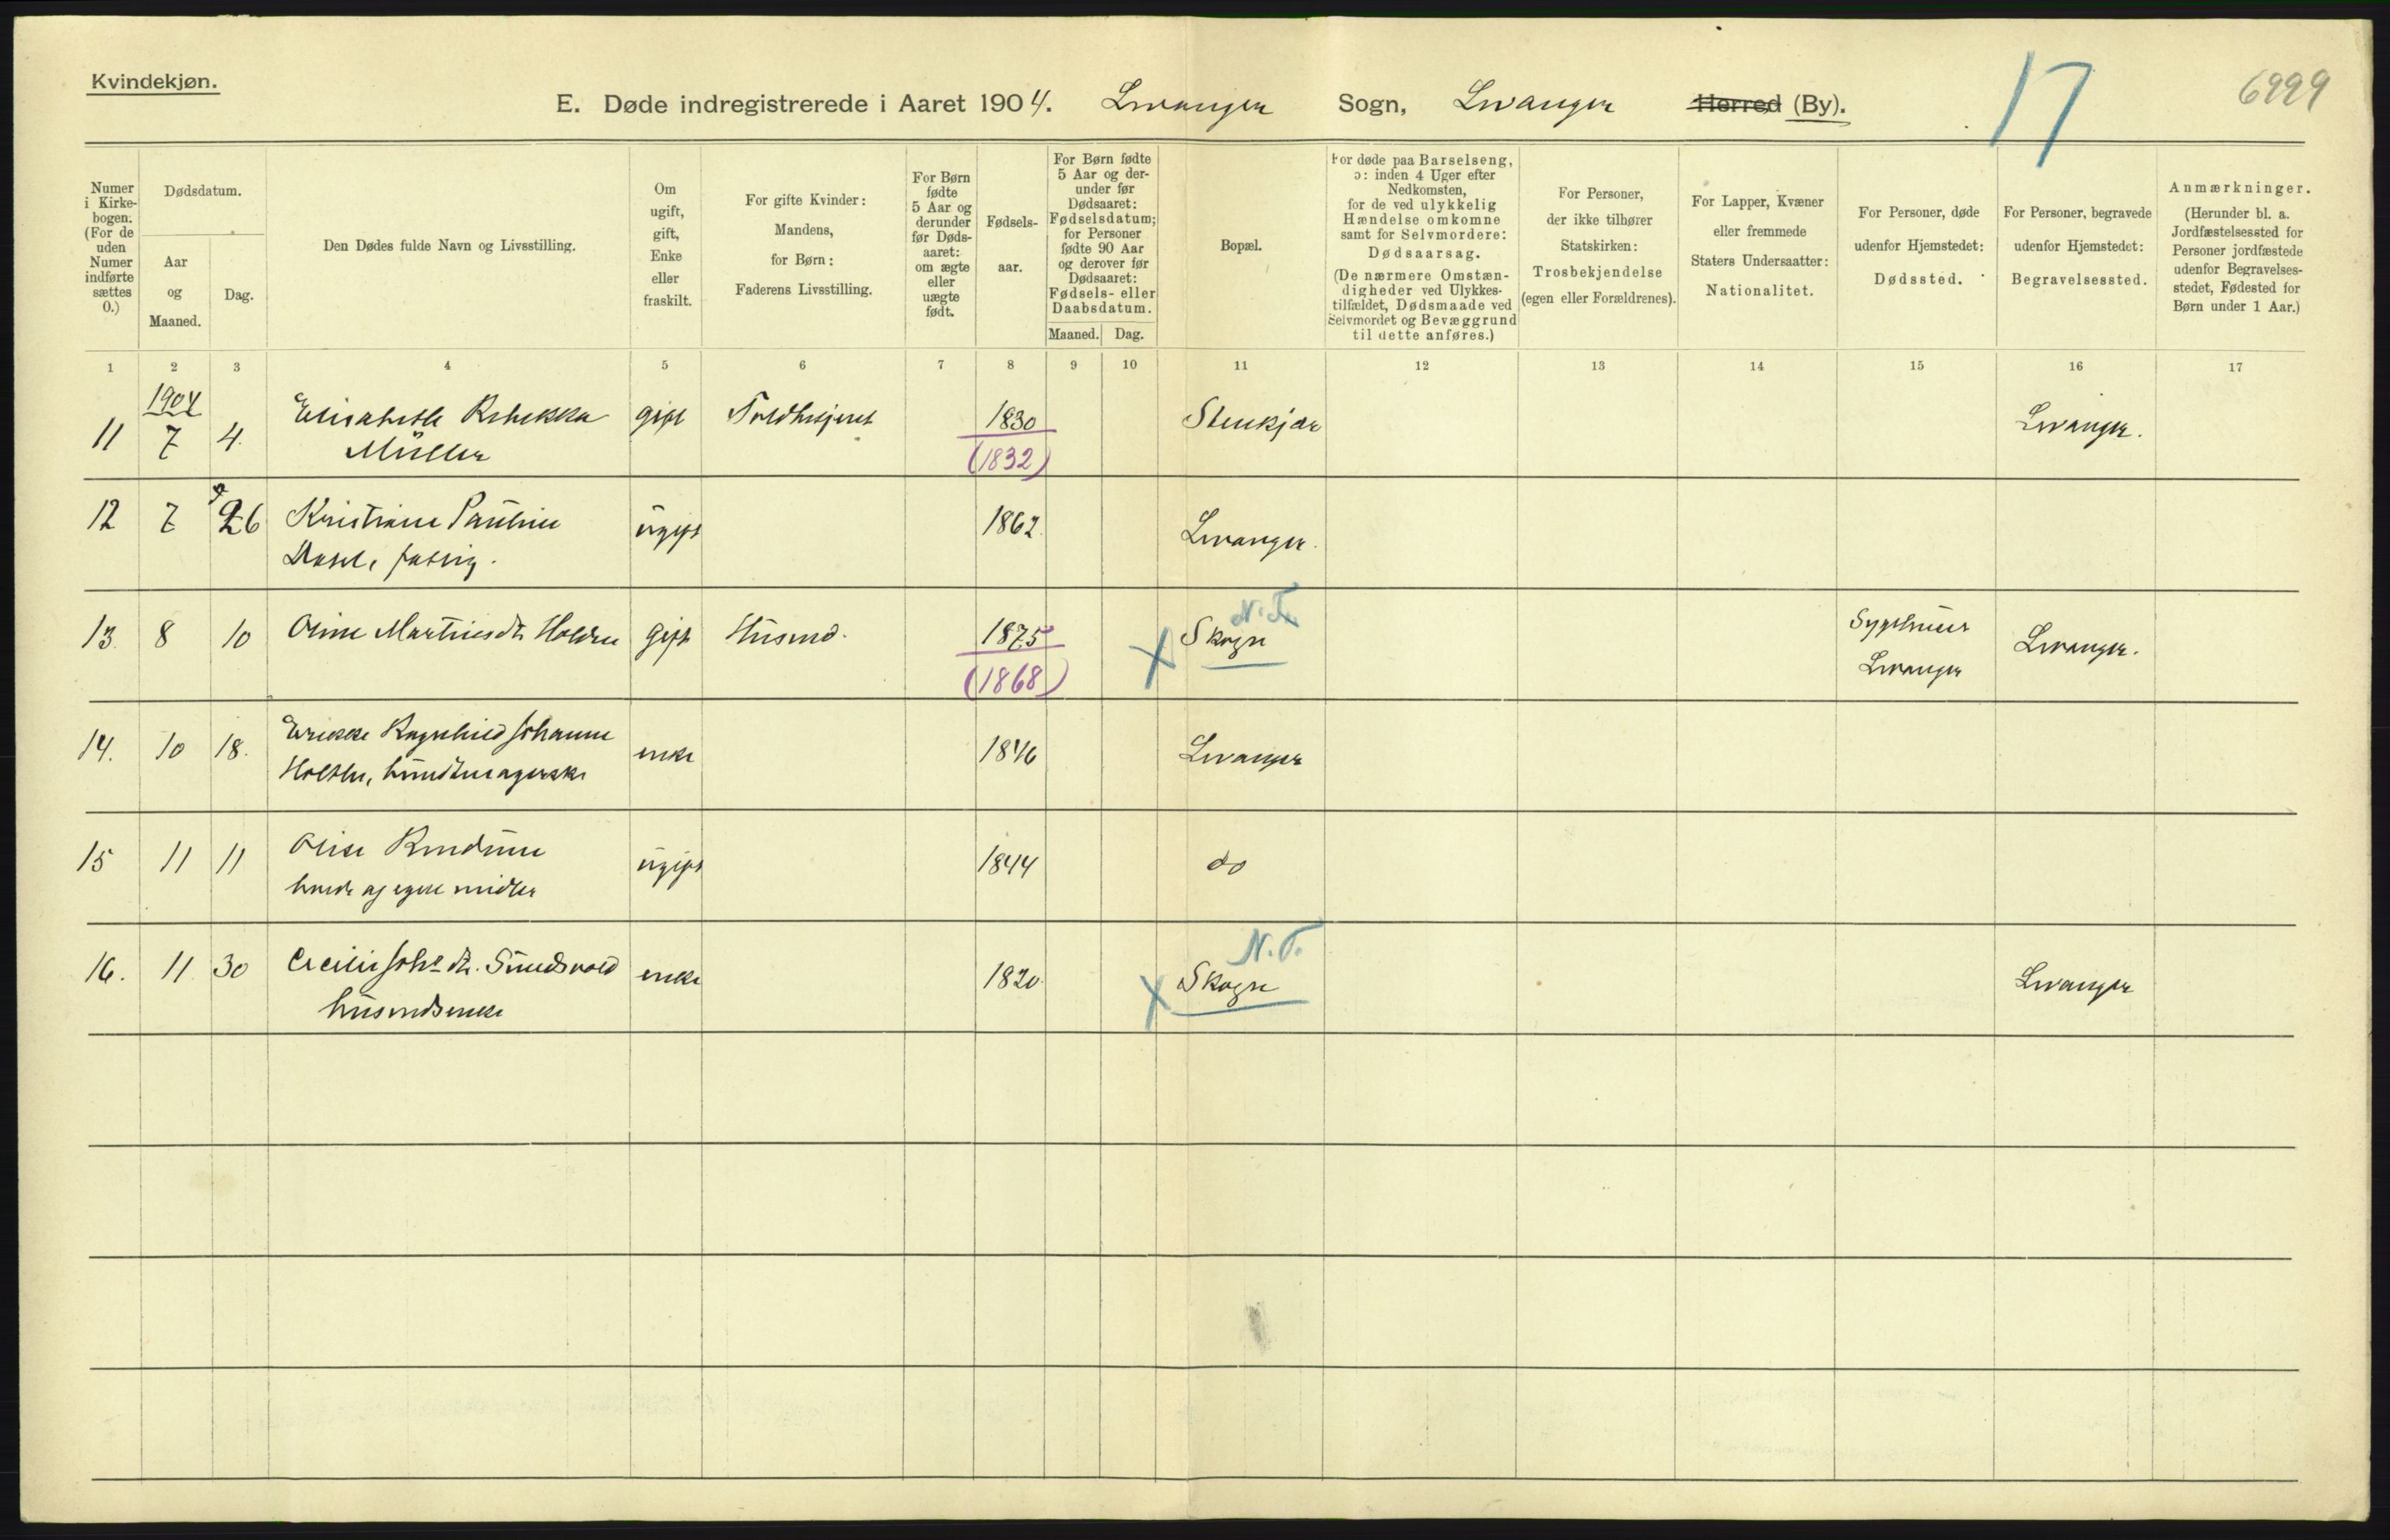 Kvindekjøn.
E. Døde indregistrerede i Aaret 1904. Levanger Sogn, Levanger Herred (By).
17
6999
Numer i Kirke-bogen. (For de uden Numer indførte sættes 0.)
Dødsdatum.
Aar og Maaned.
Dag.
Den Dødes fulde Navn og Livsstilling.
Om ugift, gift, Enke eller fraskilt.
For gifte Kvinder: Mandens, for Børn: Faderens Livsstilling.
For Børn fødte 5 Aar og derunder før Døds-aaret: om ægte eller uægte født.
Fødsels-aar.
For Børn fødte 5 Aar og der-under før Dødsaaret: Fødselsdatum; for Personer fødte 90 Aar og derover før Dødsaaret: Fødsels- eller Daabsdatum.
Maaned. Dag.
Bopæl.
For døde paa Barselseng, ɔ: inden 4 Uger efter Nedkomsten, for de ved ulykkelig Hændelse omkomne samt for Selvmordere: Dødsaarsag. (De nærmere Omstæn-digheder ved Ulykkes-tilfældet, Dødsmaade ved Selvmordet og Bevæggrund til dette anføres.)
For Personer, der ikke tilhører Statskirken: Trosbekjendelse (egen eller Forældrenes).
For Lapper, Kvæner eller fremmede Staters Undersaatter: Nationalitet.
For Personer, døde udenfor Hjemstedet: Dødssted.
For Personer, begravede udenfor Hjemstedet: Begravelsessted.
Anmærkninger. (Herunder bl. a. Jordfæstelsessted for Personer jordfæstede udenfor Begravelses-stedet, Fødested for Børn under 1 Aar.)
1 2 3 4 5 6 7 8 9 10 11 12 13 14 15 16 17
1904
11 7 4. Elisabeth Rebekka gift 1830 Stenkjær Levanger.
Müller (1832)
12 7 26 Kristiane Pauline ugift 1862. Levanger.
fattig.
N. T.
13. 8 10 Oline Martinesdtr Holdren gift Husmd. 1875 Skogn Sygehuset Levanger.
(1868) Levanger
14. 10 18. Erikke Ragnhild Johanne enke 1846 Levanger
Holthe,
15 11 11 Olise ugift 1844 do
levede af egne midler
N. T.
16. 11 30 Cecilie Johs dtr. Sundsvold enke 1820. Skogn Levanger
husmdsenke